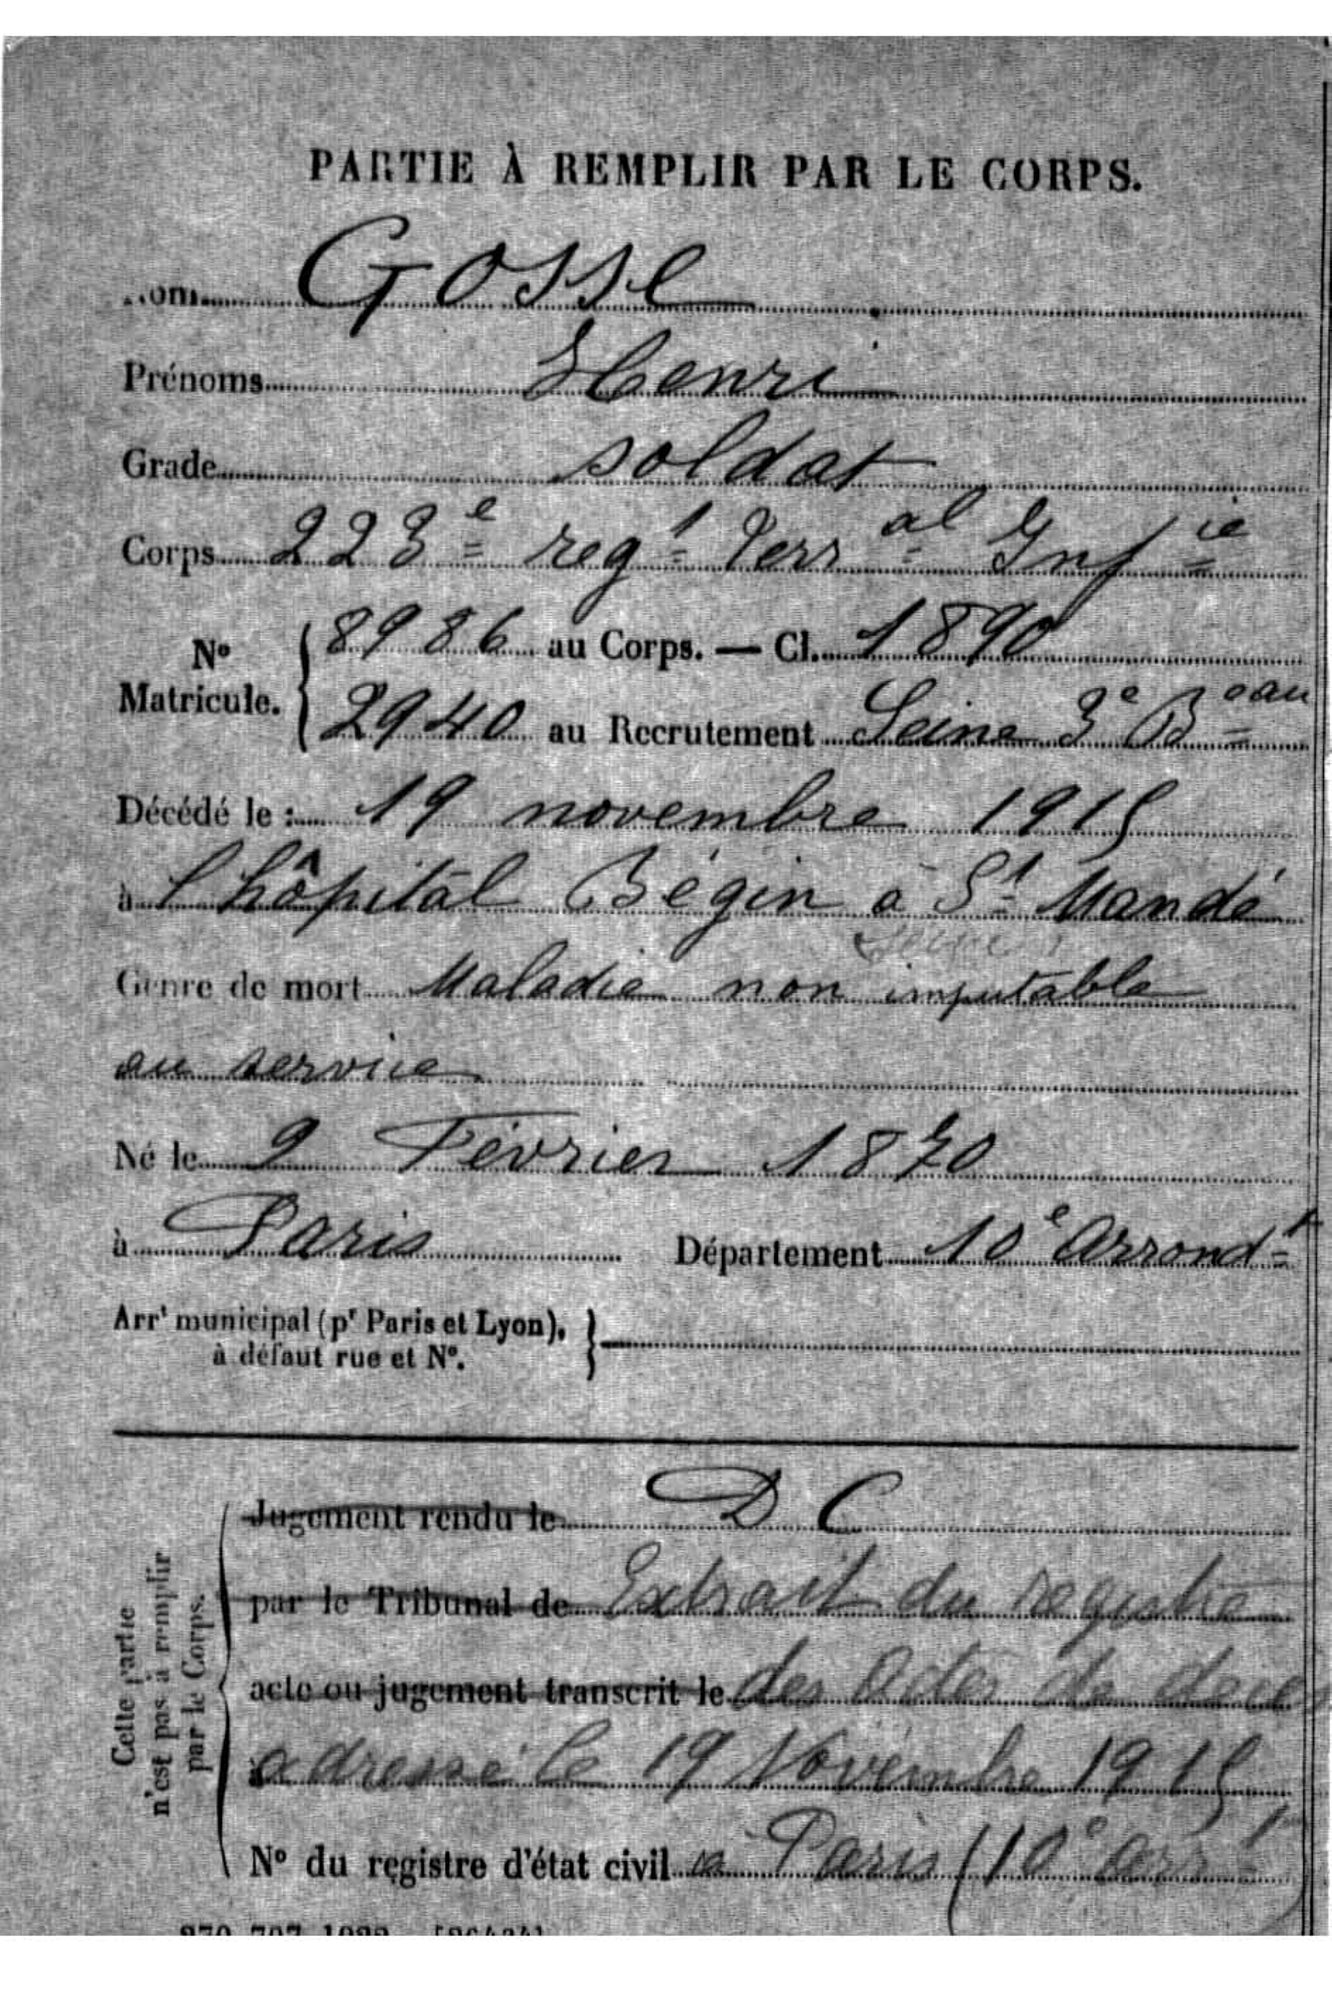 PARTIE À REMPLIR PAR LE CORPS.
Nom GOSSE
Prénoms Henri
Grade soldat
Corps 223e regt Terral Infie
No Matricule. { 8986 au Corps. — Cl. 1890
2940 au Recrutement Seine 3e Beau
Décédé le : 19 novembre 1915
à l'hôpital Bégin à St Mandé
(Seine)
Genre de mort Maladie non imputable
au service
Né le 9 Février 1870
à Paris Département 10e Arrondt
Arrt municipal (pr Paris et Lyon), à défaut rue et No. }
Cette partie n'est pas à remplir par le Corps.
Jugement rendu le D C
par le Tribunal de Extrait du registre
acte ou jugement transcrit le des actes de décès
à adressé le 19 Novembre 1915
No du registre d'état civil à Paris (10e arrt)